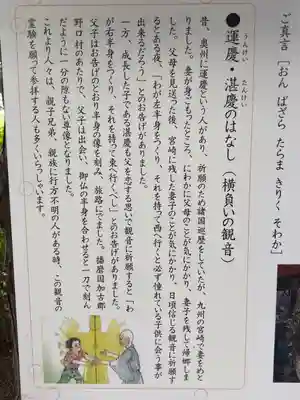 ご真言 「おん ばざら たらま きりく そわか」
●運慶・湛慶のはなし(横負いの観音)
うんけい たんけい
昔、奥州に運慶という人があり、祈願のため諸国巡歴をしていたが、九州の宮崎で妻をめと
りました。妻が身ごもったところ、にわかに父母のことが気にかかり、妻子を残して帰郷しま
した。父母を見送った後、宮崎に残した妻子のことが気にかかり、日頃信じる観音に祈願す
るとある夜、「わが左半身をつくり、それを持って西へ行くと必ず憧れている子供に会う事が
出来るだろう」とのお告げがありました。
一方、成長した子である湛慶も父を恋する思いで観音に祈願すると「わ
が右半身をつくり、それを持って東へ行くべし」とのお告げがありました。
父子はお告げのとおり半身の像を刻み、旅路にでました。播磨国加古郡
野口村のあたりで、父子は出会い、御仏の半身を合わせると一刀で刻ん
だように一分の隙もない尊像となりました。
これより人々は、親子兄弟、親族に行方不明の人がある時、この観音の
霊験を願って参拝する人も多くいらっしゃいます。